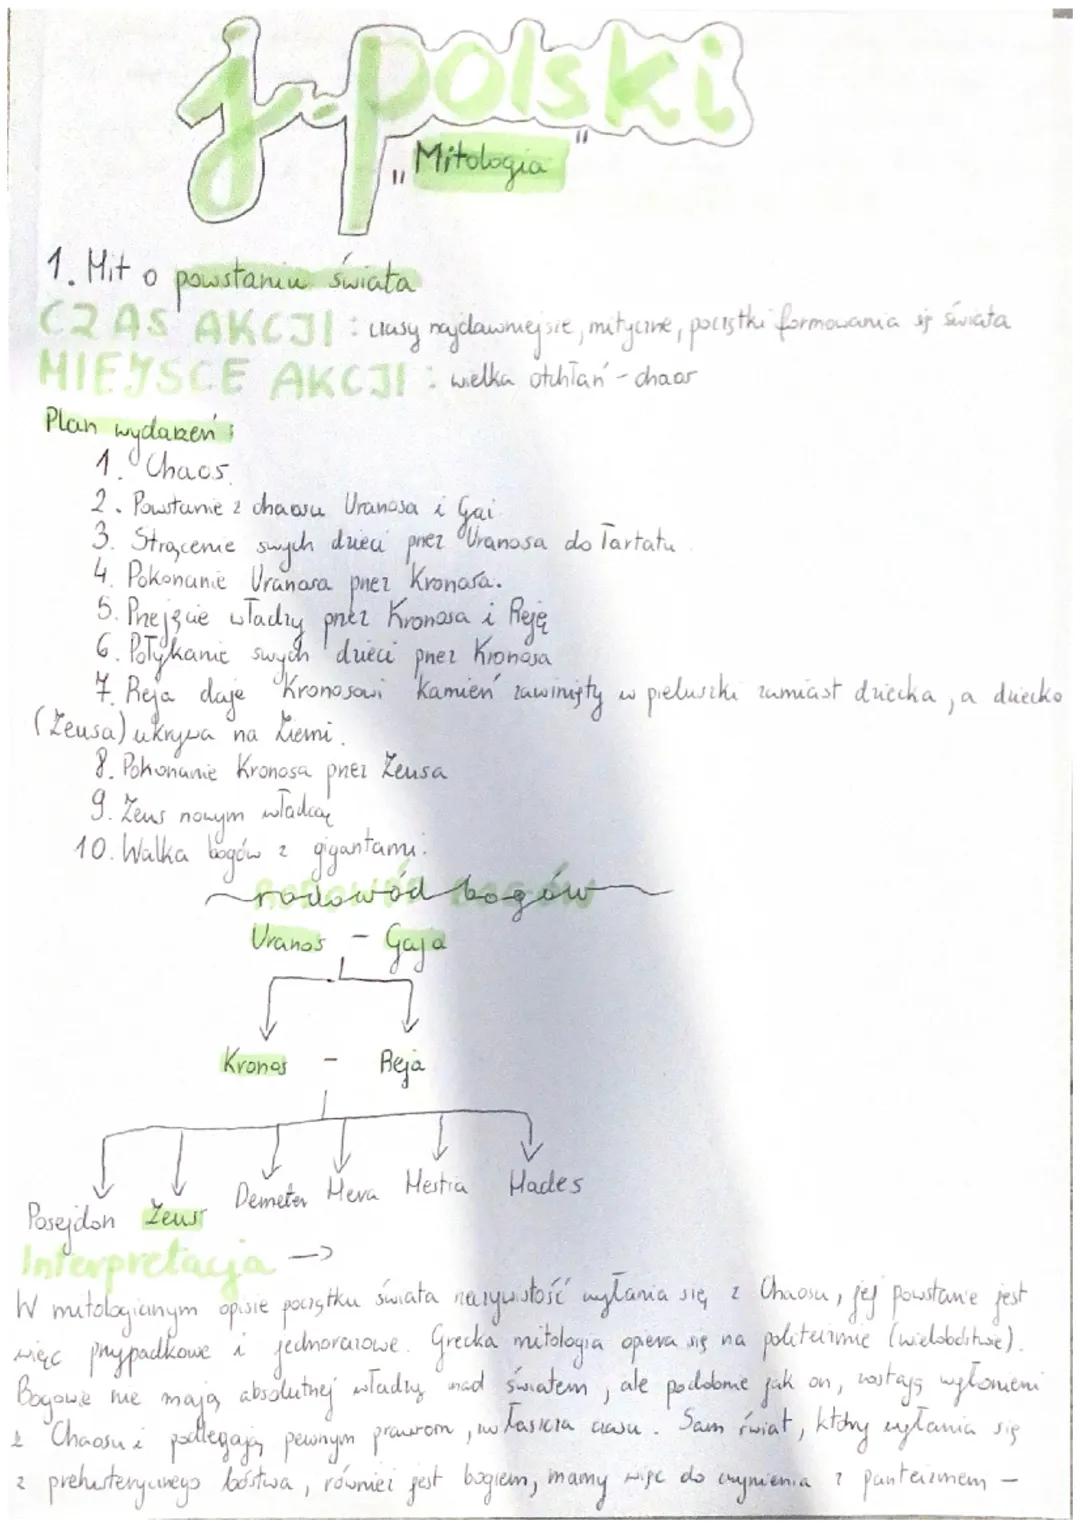 j. polski
„Mitologia"
1. Mit o powstaniu świata
CZAS AKCJI: czasy najdawniejsze, mityczne, początki formowania się świata
MIEJSCE AKCJI: wielka otchłań - chaos
Plan wydarzeń:
1. Chaos.
2. Powstanie z chaosu Uranosa i Gai
3. Strącenie swych dzieci przez Uranosa do Tartatu.
4. Pokonanie Uranosa przez Kronosa.
5. Przejęcie władzy przez Kronosa i Reję
6. Połykanie swych dzieci przez Kronosa
7. Reja daje Kronosowi kamień zawinięty w pieluszki zamiast dziecka, a dziecko
(Zeusa) ukrywa na Ziemi.
8. Pokonanie Kronosa przez Zeusa
9. Zeus nowym władcą
10. Walka bogów z gigantami.
rodowód bogów
Uranos - Gaja
Kronos - Reja
Posejdon Zeus Demeter Hera Hestia Hades
Interpretacja ->
W mitologicznym opisie początku świata rzeczywistość wyłania się z Chaosu, jej powstanie jest
więc przypadkowe i jednorazowe. Grecka mitologia opiera się na politeizmie (wielobóstwie).
Bogowie nie mają absolutnej władzy nad światem, ale podobnie jak on, zostają wyłonieni
z Chaosu i podlegają pewnym prawom, zwłaszcza czasu. Sam świat, który wyłania się
z bóstwa, również jest bogiem, mamy więc do czynienia z panteizmem -